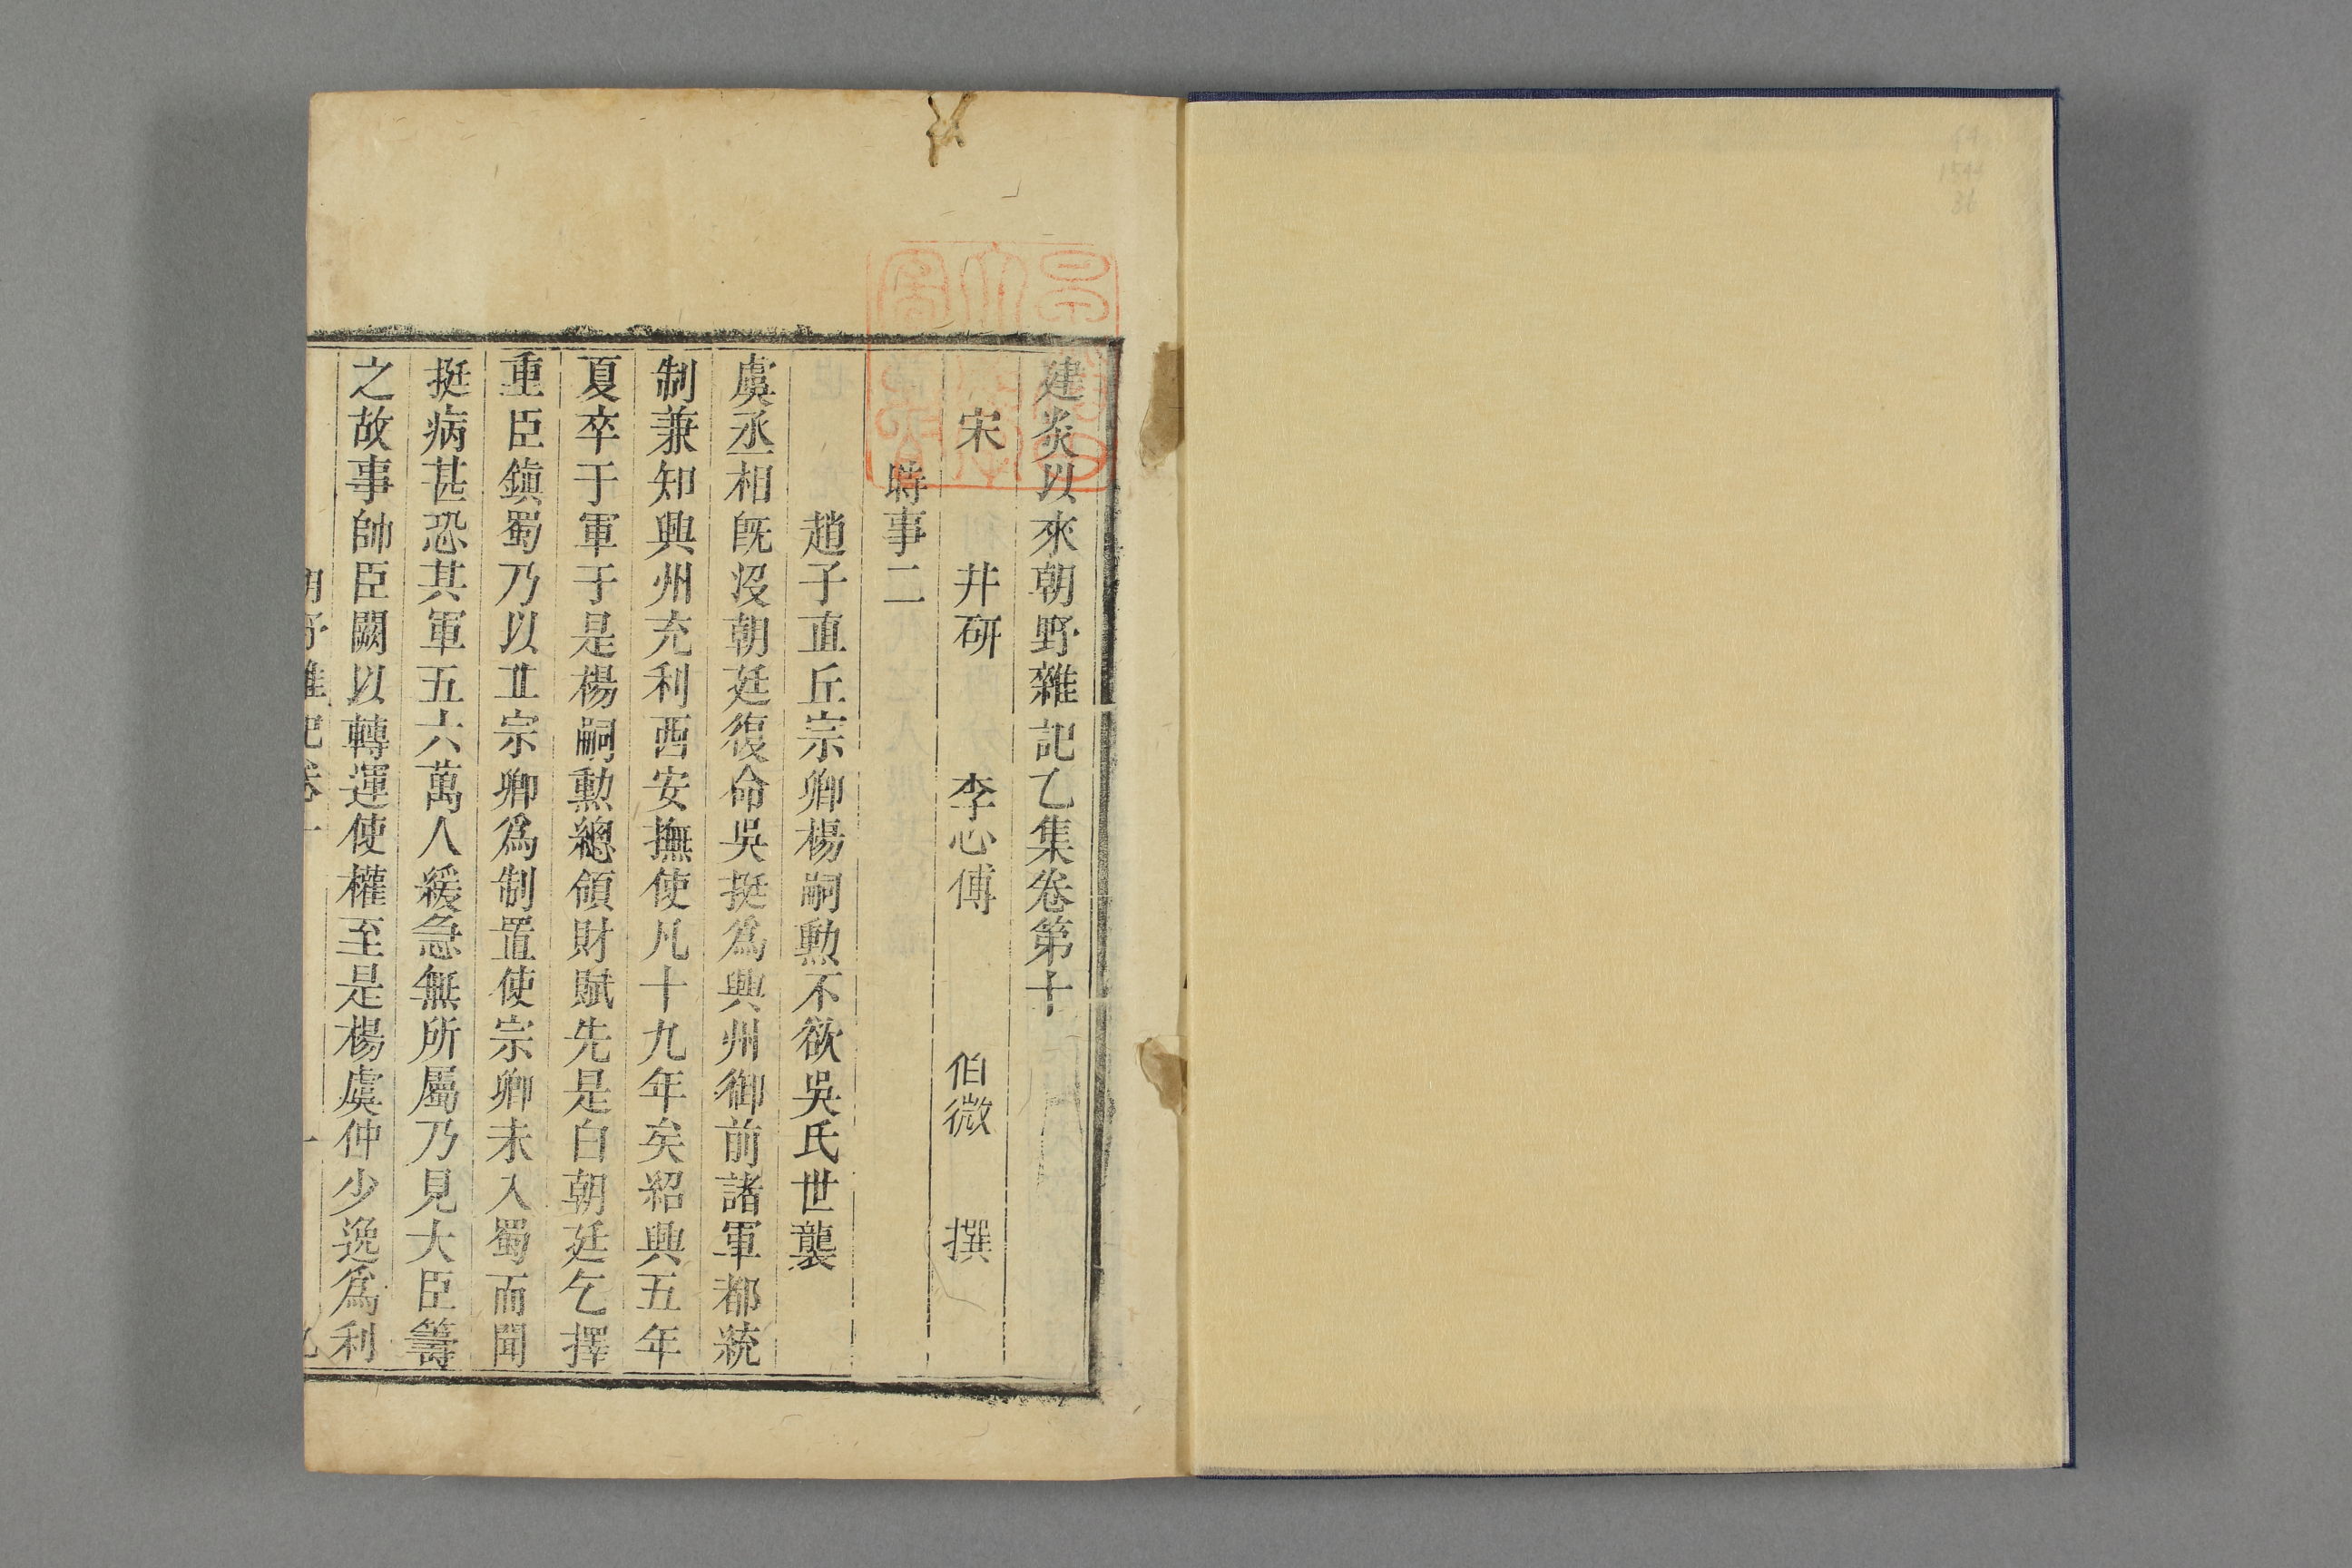 建炎以來朝野雜記乙集卷第十
宋 井研 李心傳 伯微 撰
時事二
趙子直丘宗卿楊嗣勲不欲吳氏世襲
虞丞相旣沒朝廷復命吳挺爲興州御前諸軍都統
制兼知興州充利西安撫使凡十九年矣紹興五年
夏卒于軍于是楊嗣勲總領財賦先是白朝廷乞擇
重臣鎭蜀乃以丘宗卿爲制置使宗卿未入蜀而聞
挺病甚恐其軍五六萬人緩急無所屬乃見大臣籌
之故事帥臣闕以轉運使權至是楊虞仲少逸爲利